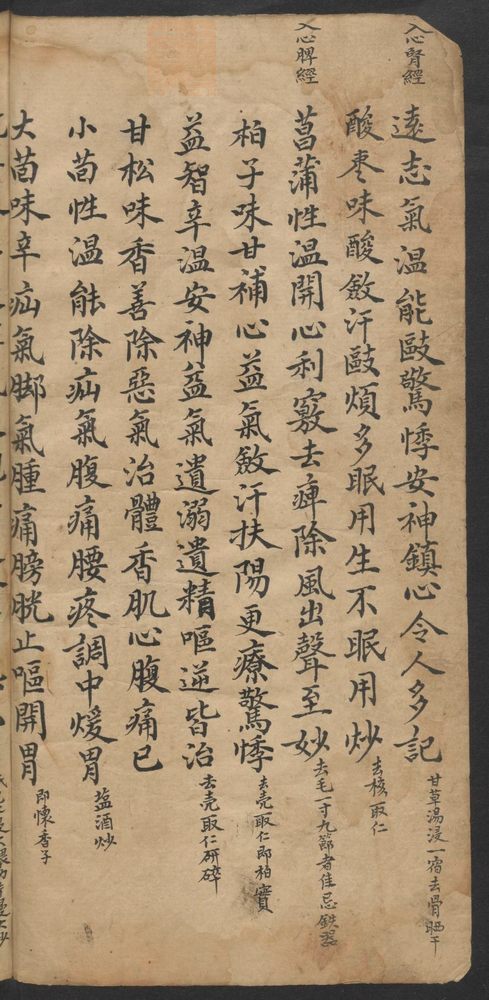 入心腎經
遠志氣溫能敺驚悸安神鎮心令人多記
甘草湯浸一宿去骨晒干
酸枣味酸斂汗敺煩多眠用生不眠用炒
去核取仁
入心脾經
菖蒲性溫開心利竅去痺除風出聲至妙
去毛一寸九節者佳忌鉄器
柏子味甘補心益氣斂汗扶陽更療驚悸
去壳取仁即柏實
益智辛溫安神益氣遺溺遺精嘔逆皆治
去壳取仁研碎
甘松味香善除惡氣治體香肌心腹痛已
小茴性溫能除疝氣腹痛腰疼調中煖胃
盐酒炒
大茴味辛疝氣脚氣腫痛膀胱止嘔開胃
即懷香子